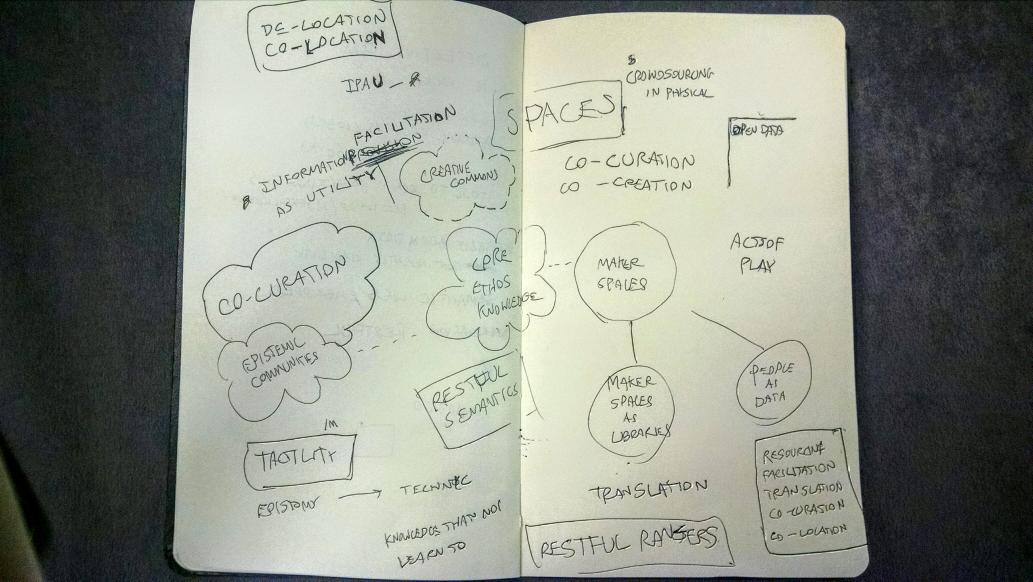 DE-LOCATION
CO-LOCATION
IPAU
FACILITATION
INFORMATION
AS UTILITY
CREATIVE
COMMONS
CO-CURATION
EPISTEMIC
COMMUNITIES
CORE
ETHOS
KNOWLEDGE
RESTFUL
SEMANTICS
/M
TACTILITY
EPISTOMY → TECHNIC
KNOWLEDGE THAT NOT
LEARN TO
SPACES
CROWDSOURCING
IN PHYSICAL
OPEN DATA
CO-CURATION
CO-CREATION
MAKER
SPACES
ACT OF
PLAY
MAKER
SPACES
AS
LIBRARIES
PEOPLE
AS
DATA
TRANSLATION
RESTFUL RANGERS
FACILITATION
TRANSLATION
CO-CURATION
CO-LOCATION